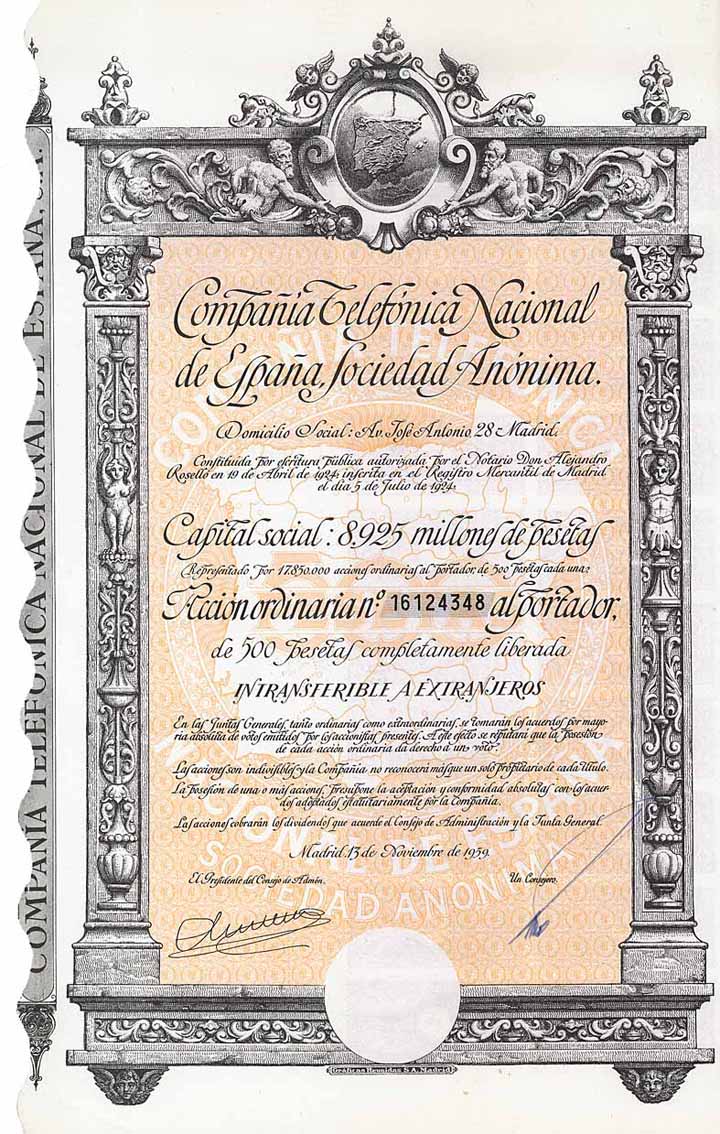 COMPAÑÍA TELEFÓNICA NACIONAL DE ESPAÑA, S.A.
Compañía Telefónica Nacional
de España, Sociedad Anónima.
Domicilio Social: Av. José Antonio, 28 Madrid.
Constituida por escritura pública autorizada por el Notario Don Alejandro
Roselló en 19 de Abril de 1924; inscrita en el Registro Mercantil de Madrid
el día 5 de Julio de 1924.
Capital social: 8.925 millones de pesetas
Representado por 17.850.000 acciones ordinarias al portador, de 500 pesetas cada una
Acción ordinaria nº 16124348 al portador,
de 500 pesetas completamente liberada
INTRANSFERIBLE A EXTRANJEROS
En las Juntas Generales, tanto ordinarias como extraordinarias, se tomarán los acuerdos por mayo-
ría absoluta de votos emitidos por los accionistas presentes. A este efecto se reputará que la posesión
de cada acción ordinaria da derecho a un voto.
Las acciones son indivisibles y la Compañía no reconocerá más que un solo propietario de cada título.
La posesión de una o más acciones, presupone la aceptación y conformidad absolutas con los acuer-
dos adoptados estatutariamente por la Compañía.
Las acciones cobrarán los dividendos que acuerde el Consejo de Administración y la Junta General.
Madrid, 13 de Noviembre de 1959.
El Presidente del Consejo de Admón.
Un Consejero.
COMPAÑIA TELEFONICA
NACIONAL DE ESPAÑA
SOCIEDAD ANONIMA
Gráficas Reunidas S.A. Madrid